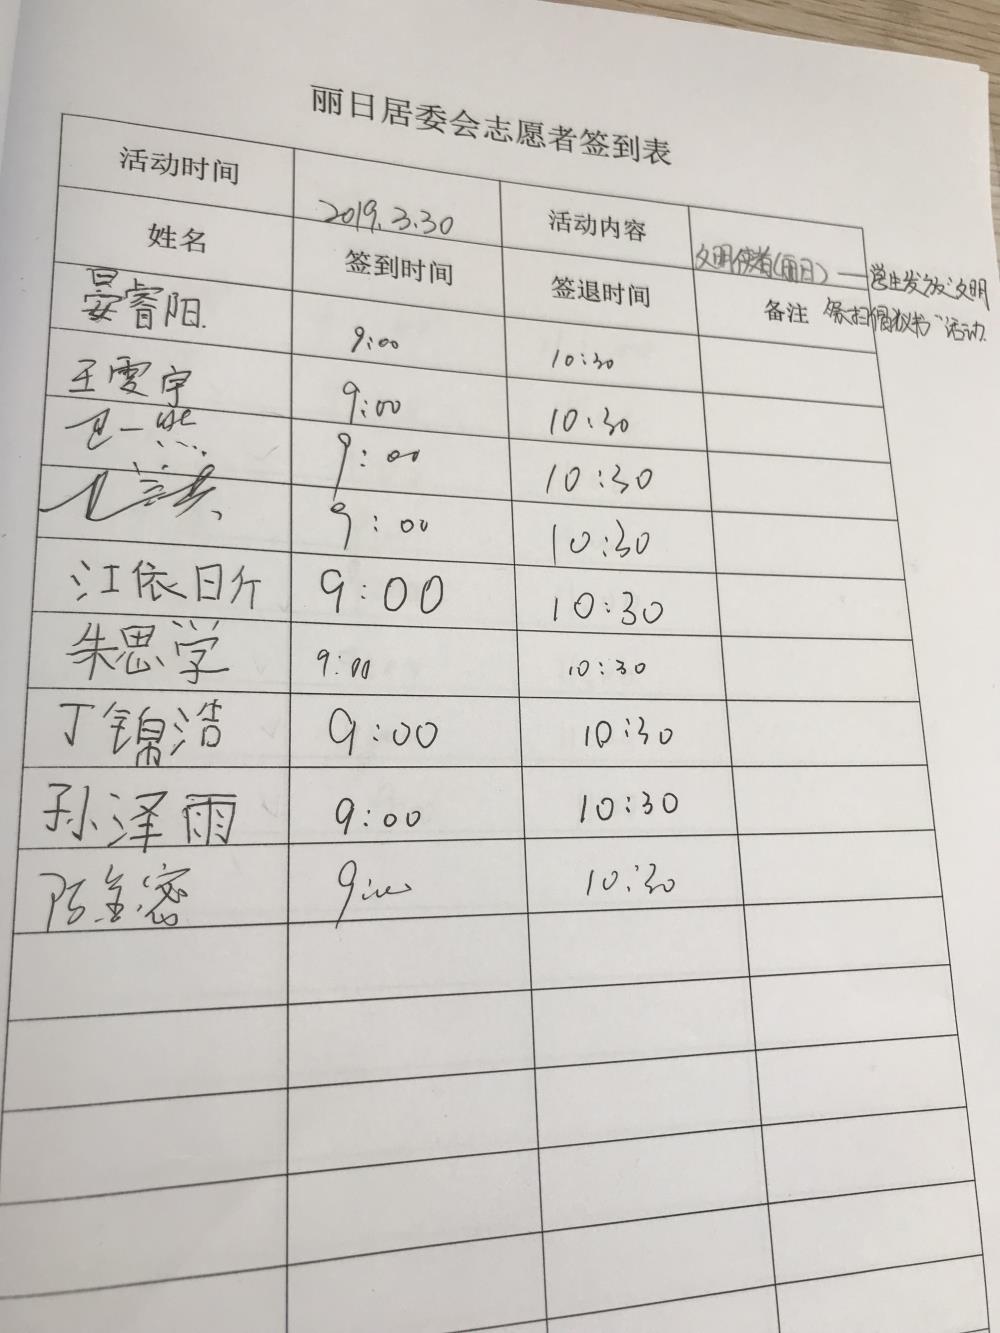 丽日居委会志愿者签到表
活动时间 2019.3.30 活动内容 文明使者(丽日)——学生发放"文明
祭扫倡议书"活动
姓名 签到时间 签退时间 备注
晏睿阳. 9:00 10:30
王雯宇 9:00 10:30
9:00 10:30
9:00 10:30
江依昕 9:00 10:30
朱思学 9:00 10:30
丁锦浩 9:00 10:30
孙泽雨 9:00 10:30
9:00 10:30